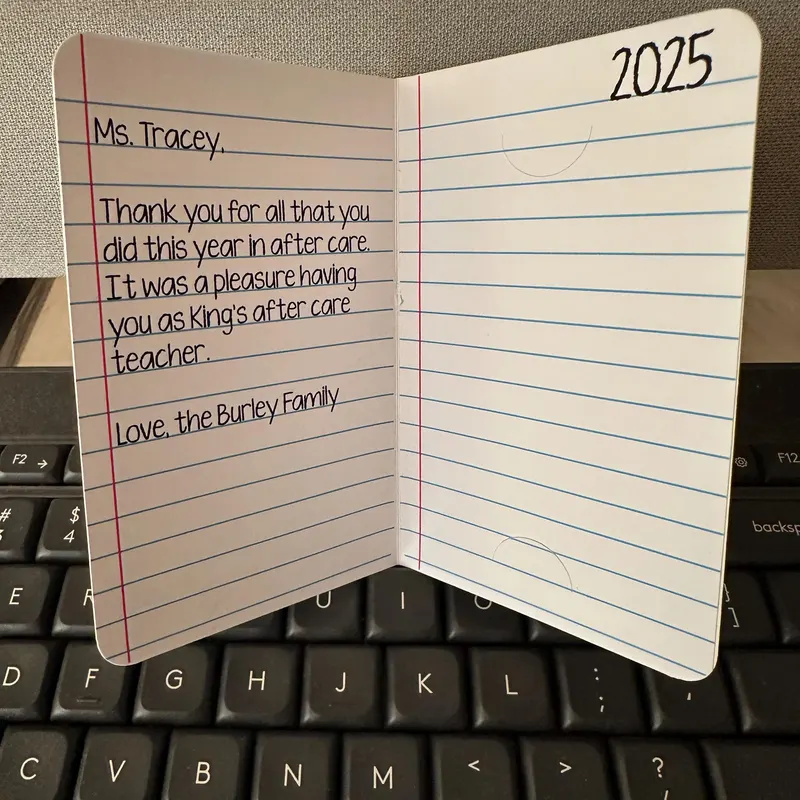 2025
Ms. Tracey,
Thank you for all that you
did this year in after care.
It was a pleasure having
you as King's after care
teacher.
Love, the Burley Family
F2 →
F12
# 3
$ 4
backsp
E
R
U
I
O
} ]
D
F
G
H
J
K
L
: ;
C
V
B
N
M
<
>
? /